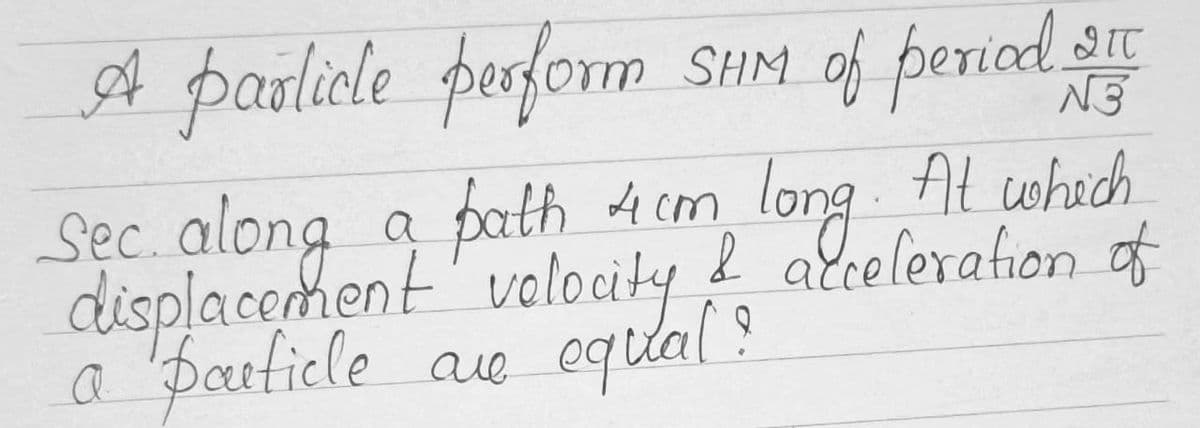 A particle perform SHM of period 2π/√3
Sec. along a path 4 cm long. At which
displacement velocity & acceleration of
a particle are equal?